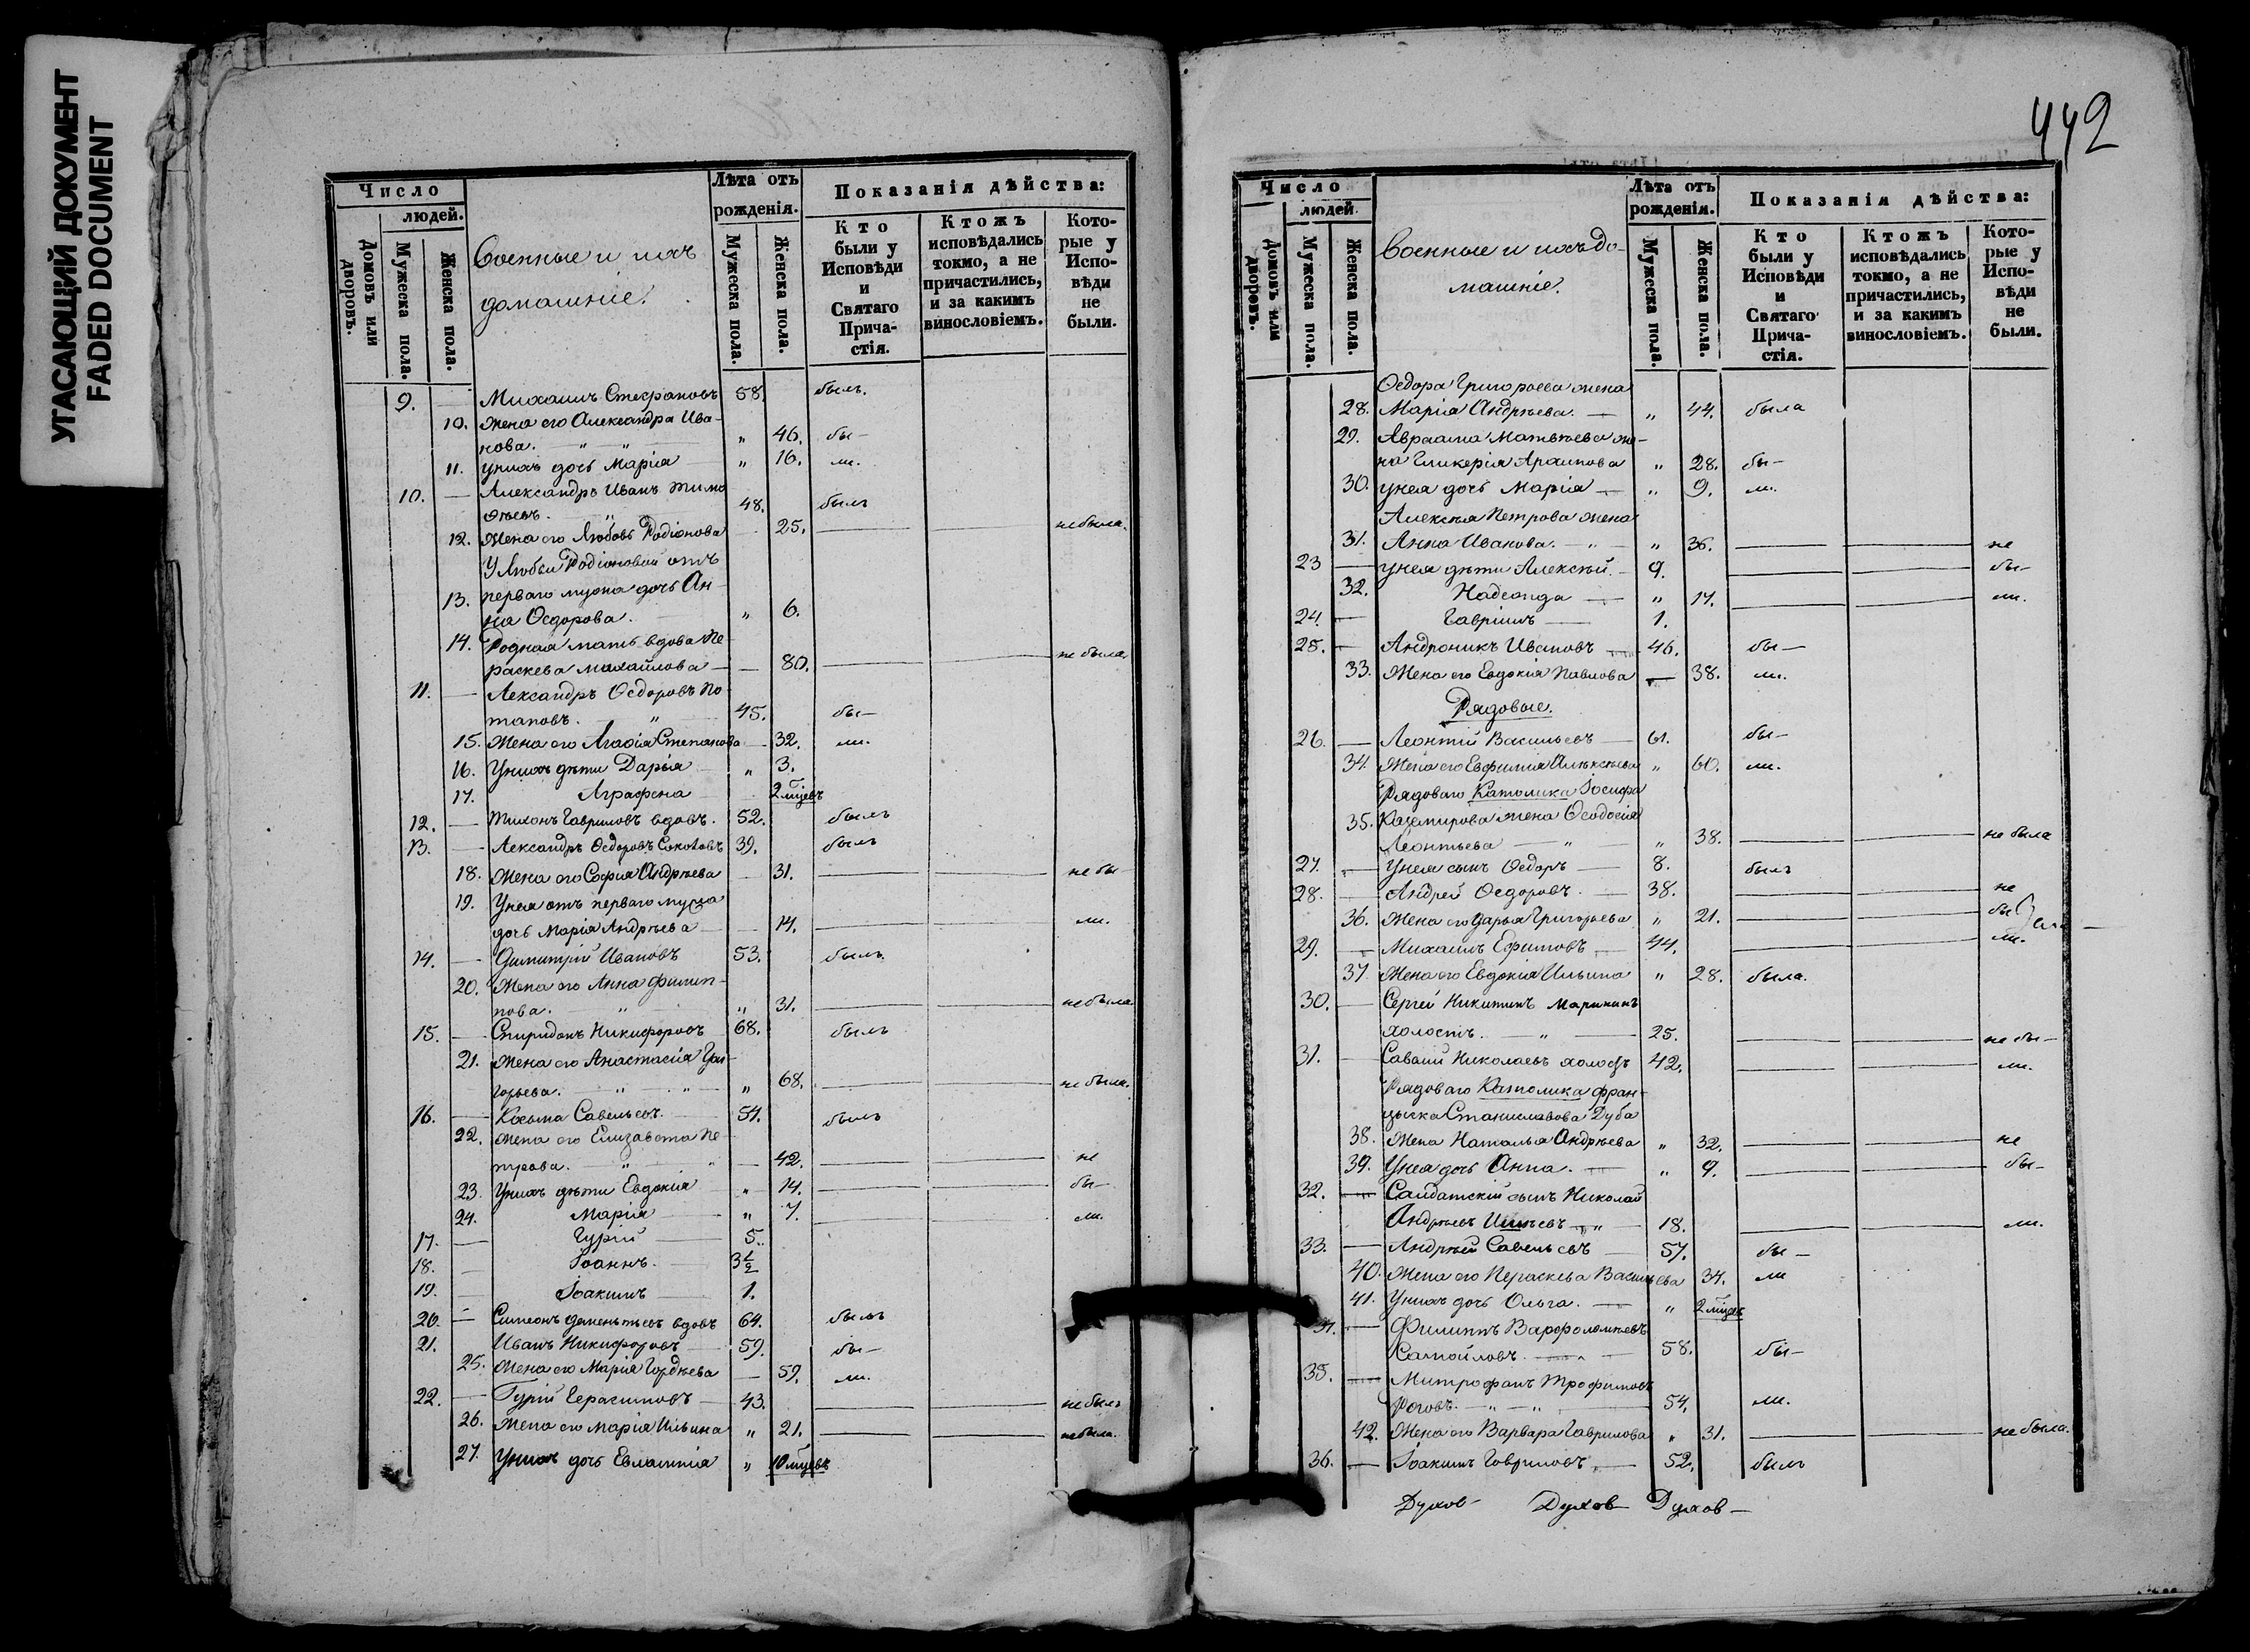 УГАСАЮЩИЙ ДОКУМЕНТ
FADED DOCUMENT
Число
людей.
Домовъ или дворовъ.
Мужеска пола.
Женска пола.
Военные и ихъ
домашніе.
Лѣта отъ
рожденія.
Мужеска пола.
Женска пола.
Показанія дѣйства:
Кто
были у
Исповѣди
и
Святаго
Прича-
стія.
Ктожъ
исповѣдались
токмо, а не
причастились,
и за какимъ
винословіемъ.
Кото-
рые у
Испо-
вѣди
не
были.
9. — Михаилъ Стефановъ 58. былъ.
10. Жена его Александра Ива-
нова. " " " 46. бы-
11. У нихъ дочь Марія " 16. ли.
10. — Александръ Иванъ Тимо
ѳеевъ. " 48. былъ
12. Жена его Любовь Родіонова — 25. — — не была.
У Любви Родіоновой отъ
13. перваго мужа дочь Ан-
на Ѳедорова. " 6.
14. Родная мать вдова Пе-
раскева Михайлова — — 80. — — не была.
11. — Лександръ Ѳедоровъ По-
таповъ. " 45. бы-
15. Жена его Агафія Степанова — 32. ли.
16. У нихъ дѣти Дарья " 3.
17. Аграфена 2 мѣцевъ
12. — Тихонъ Гавриловъ вдовъ. 52. былъ
13. — Лександръ Ѳедоровъ Соколовъ 39. былъ
18. Жена его Софія Андрѣева — 31. — — не бы-
19. У нея отъ перваго мужа
дочь Марія Андрѣева — 14. — — ли.
14. — Димитрій Ивановъ 53. былъ
20. Жена его Анна Филип-
пова. " " 31. — — не была
15. — Спиридонъ Никифоровъ 68. былъ
21. Жена его Анастасія Гри-
горьева. " " " 68. — — не была.
16. — Козьма Савельевъ. 54. былъ
22. Жена его Елизавета Пе-
трова. " " — 42. — — не
23. У нихъ дѣти Евдокія " 14. — — бы-
24. Марія " 7. — — ли.
17. — Гурій — 5.
18. — Іоаннъ. — 3½
19. — Іоакимъ — 1.
20. — Симеонъ Дементьевъ вдовъ 64. былъ
21. Иванъ Никифоровъ 59. бы-
25. Жена его Марія Гордѣева — 59. ли.
22. — Гурій Герасимовъ 43. — — не былъ
26. Жена его Марія Ильина " 21. — — не была.
27. У нихъ дочь Евлампія " 10 мѣцевъ
442
Число
людей.
Домовъ или дворовъ.
Мужеска пола.
Женска пола.
Военные и ихъ до-
машніе.
Лѣта отъ
рожденія.
Мужеска пола.
Женска пола.
Показанія дѣйства:
Кто
были у
Исповѣди
и
Святаго
Прича-
стія.
Ктожъ
исповѣдались
токмо, а не
причастились,
и за какимъ
винословіемъ.
Кото-
рые у
Испо-
вѣди
не
были.
Ѳедора Григорьева жена
28. Марія Андрѣева. — " 44. была
29. Авраама Матвѣева же-
на Гликерія Архипова " 28. бы-
30. У нея дочь Марія — " 9. ли.
Алексѣя Петрова жена
31. Анна Иванова. — " " 36. — — не
23 — У нея дѣти Алексѣй. — 9. — — бы-
32. Надежда — " 17. — — ли.
24. — Гавріилъ — 1.
25. — Андроникъ Ивановъ — 46. бы-
33. Жена его Евдокія Павлова — 38. ли.
Рядовые.
26. — Леонтій Васильевъ — 61. бы-
34. Жена его Евфимія Алексѣева " 60. ли.
Рядоваго Католика Іосифа
35. Каземирова жена Ѳеодосія
Леонтьева — " " 38. — — не была
27. — У нея сынъ Ѳедоръ — 8. былъ
28. — Андрей Ѳедоровъ. — 38. — — не
36. Жена его Дарья Григорьева " 21. — — бы-
29. — Михаилъ Ефимовъ — 44. — — ли.
37. Жена его Евдокія Ильина " 28. была.
30. — Сергѣй Никитинъ Марининъ
холостъ. — " — 25. — — не бы-
31. — Саваій Николаевъ холостъ 42. — — ли.
Рядоваго Католика Фран-
цыска Станиславова Дуба
38. Жена Наталья Андрѣева " 32. — — не
39. У нея дочь Анна. — " 9. — — бы-
32. — Салдатскій сынъ Николай
Андрѣевъ — " — 18. — — ли.
33. — Андрѣй Савельевъ — 57. бы-
40. Жена его Пераскева Васильева 34. ли
41. У нихъ дочь Ольга. — " 2 мѣцевъ
34. — Филиппъ Варфоломѣевъ
Самойловъ. — 58. бы-
35. — Митрофанъ Трофимовъ
Роговъ. — " — " 54. ли.
42. Жена его Варвара Гаврилова " 31. — — не была.
36. — Іоакимъ Гавриловъ. — 52. былъ
Духов- Духов- Духов-